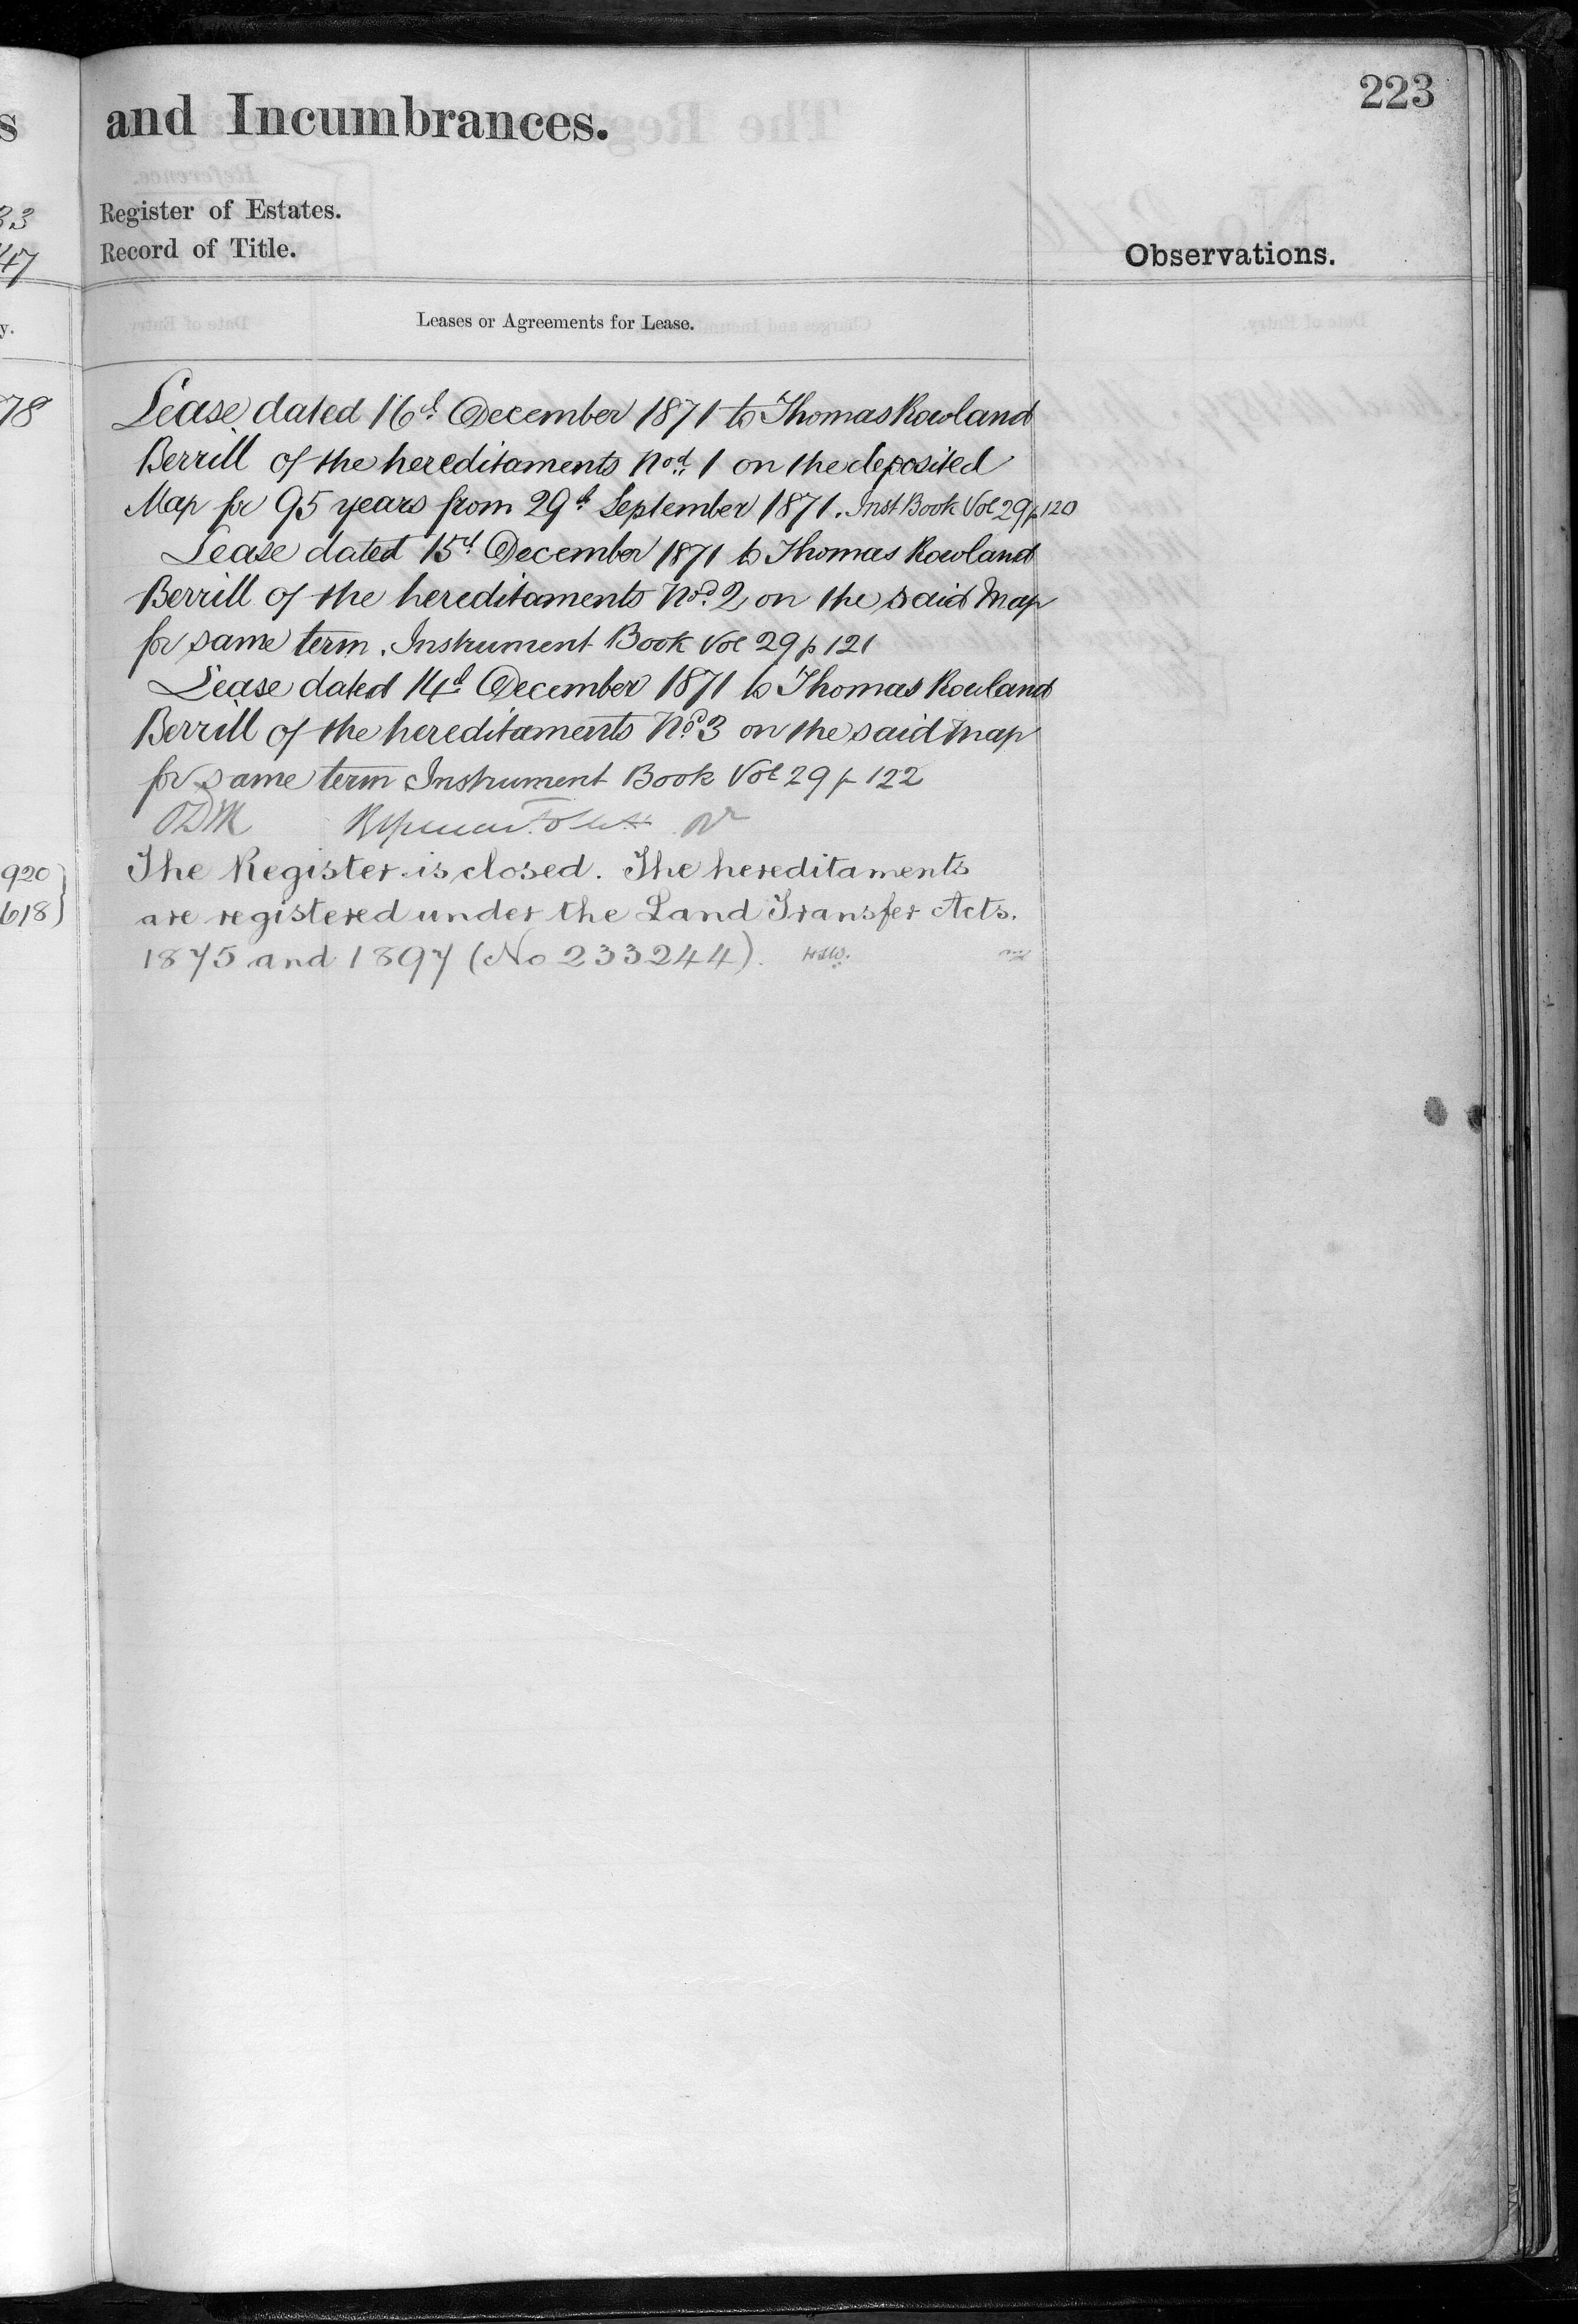 223
and Incumbrances.
Register of Estates.
Record of Title.
Observations.
Leases or Agreements for Lease.
Lease dated 16th December 1871 to Thomas Rowland
Berrill of the hereditaments Nod. 1 on the deposited
Map for 95 years from 29th September 1871. Inst Book Vol 29 p 120
Lease dated 15th December 1871 to Thomas Rowland
Berrill of the hereditaments Nod. 2 on the said Map
for same term. Instrument Book Vol 29 p 121
Lease dated 14th December 1871 to Thomas Rowland
Berrill of the hereditaments Nod. 3 on the said Map
for same term Instrument Book Vol 29 p 122
The Register is closed. The hereditaments
are registered under the Land Transfer Acts.
1875 and 1897 (No 233244).
s
33
47
y.
78
920
618